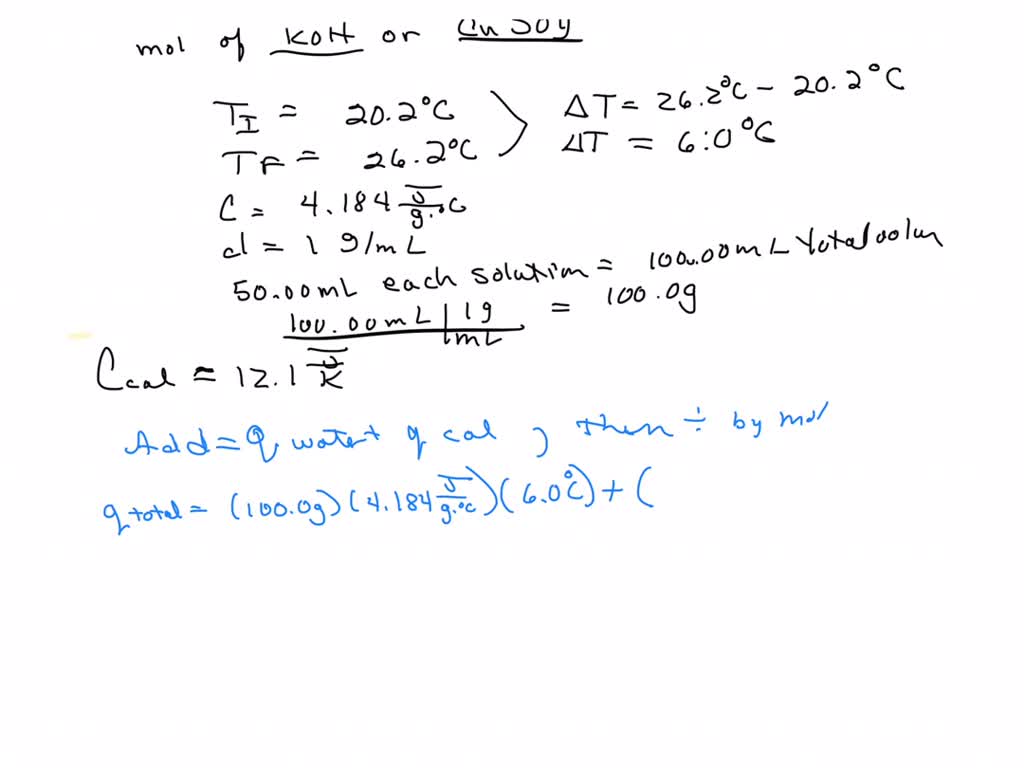 mol of KOH or CuSO4
TI = 20.2°C
ΔT = 26.2°C - 20.2°C
TF = 26.2°C
ΔT = 6.0°C
C = 4.184 J/g·°C
d = 1 g/mL
50.00mL each solution = 100.00mL total
100.00mL | 1g / mL = 100.0g
Ccal = 12.1 J/K
Add = q water + q cal, then ÷ by mol
q total = (100.0g)(4.184 J/g·°C)(6.0°C) + (